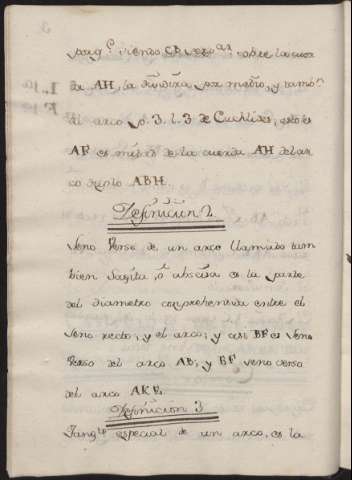 porq.e siendo CB sobre la cuer
da AH, la divide por medio, y tambn
el arco p. 3. l. 3 de Euclides, esto es
AF es mitad de la cuerda AH del ar
co duplo ABH.
Definicion 2
Seno Verso de un arco llamado tam
bien Sagita, ò abscisa es la parte
del diametro comprehendida entre el
seno recto, y el arco, y asi BF es seno
Verso del arco AB, y BF seno verso
del arco AKE.
Definicion 3
Tangte especial de un arco, es la